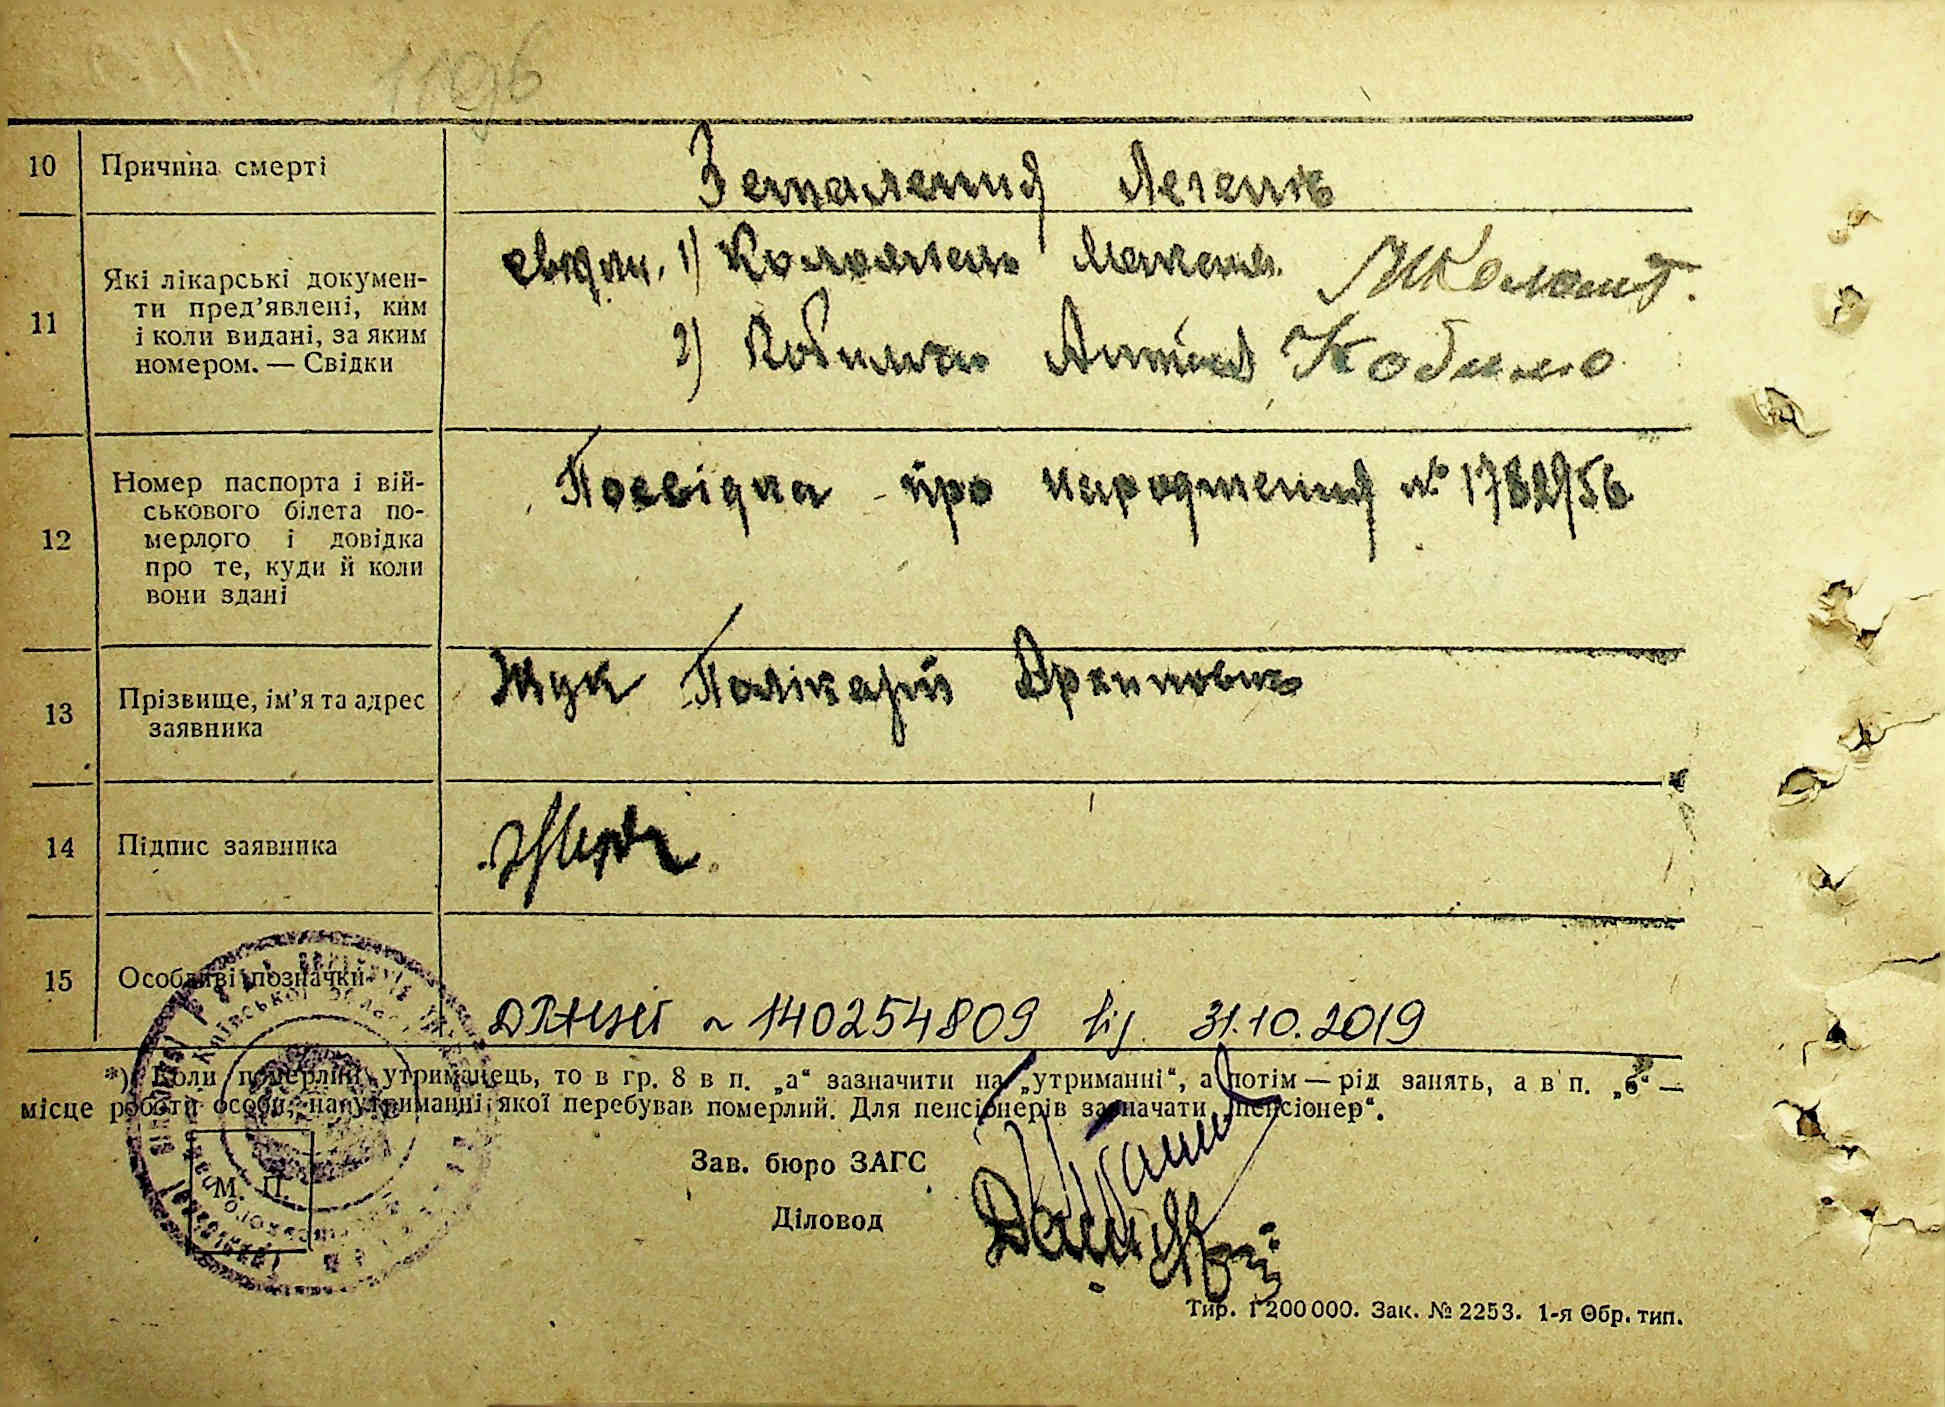 1196
10 Причина смерті Зепалення Легенів
11 Які лікарські докумен-
ти пред'явлені, ким
і коли видані, за яким
номером. — Свідки
свідки. 1)
2) Кобилко Кобилко
12 Номер паспорта і вій-
ськового білета по-
мерлого і довідка
про те, куди й коли
вони здані
Посвідка про народження №
13 Прізвище, ім'я та адрес
заявника
Жук Полікарп Архипович
14 Підпис заявника
15 Особливі позначки
ДРАЦСГ № 140254809 від 31.10.2019
*) Коли померлий утриманець, то в гр. 8 в п. „а“ зазначити на „утриманні“, а потім — рід занять, а в п. „б“ —
місце роботи особи, на утриманні якої перебував померлий. Для пенсіонерів зазначати „пенсіонер“.
Зав. бюро ЗАГС
М. П.
Діловод
Тир. 1 200 000. Зак. № 2253. 1-я Обр. тип.